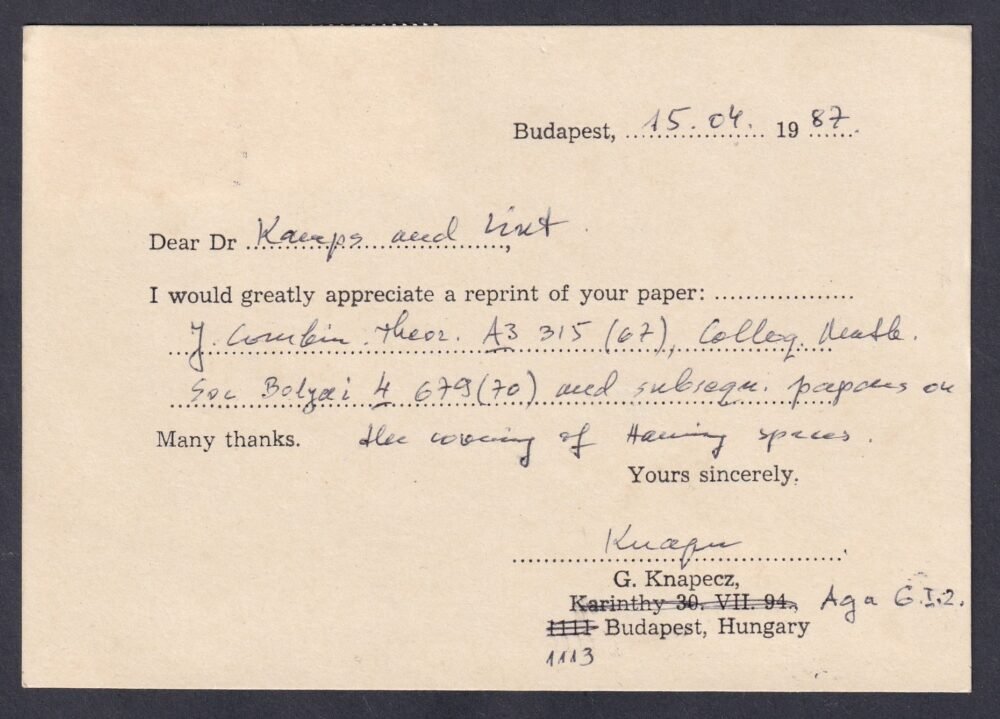 Budapest, 15. 04. 1987.
Dear Dr Kamps and Lint,
I would greatly appreciate a reprint of your paper:
J. Combin. Theor. A3 315 (67), Colloq. Math.
Soc Bolyai 4 679 (70) and subsequ. papers on
Many thanks. the covering of Haming spaces.
Yours sincerely,
G. Knapecz,
Karinthy 30. VII. 94., Aga G. I. 2.
1111 Budapest, Hungary
1113